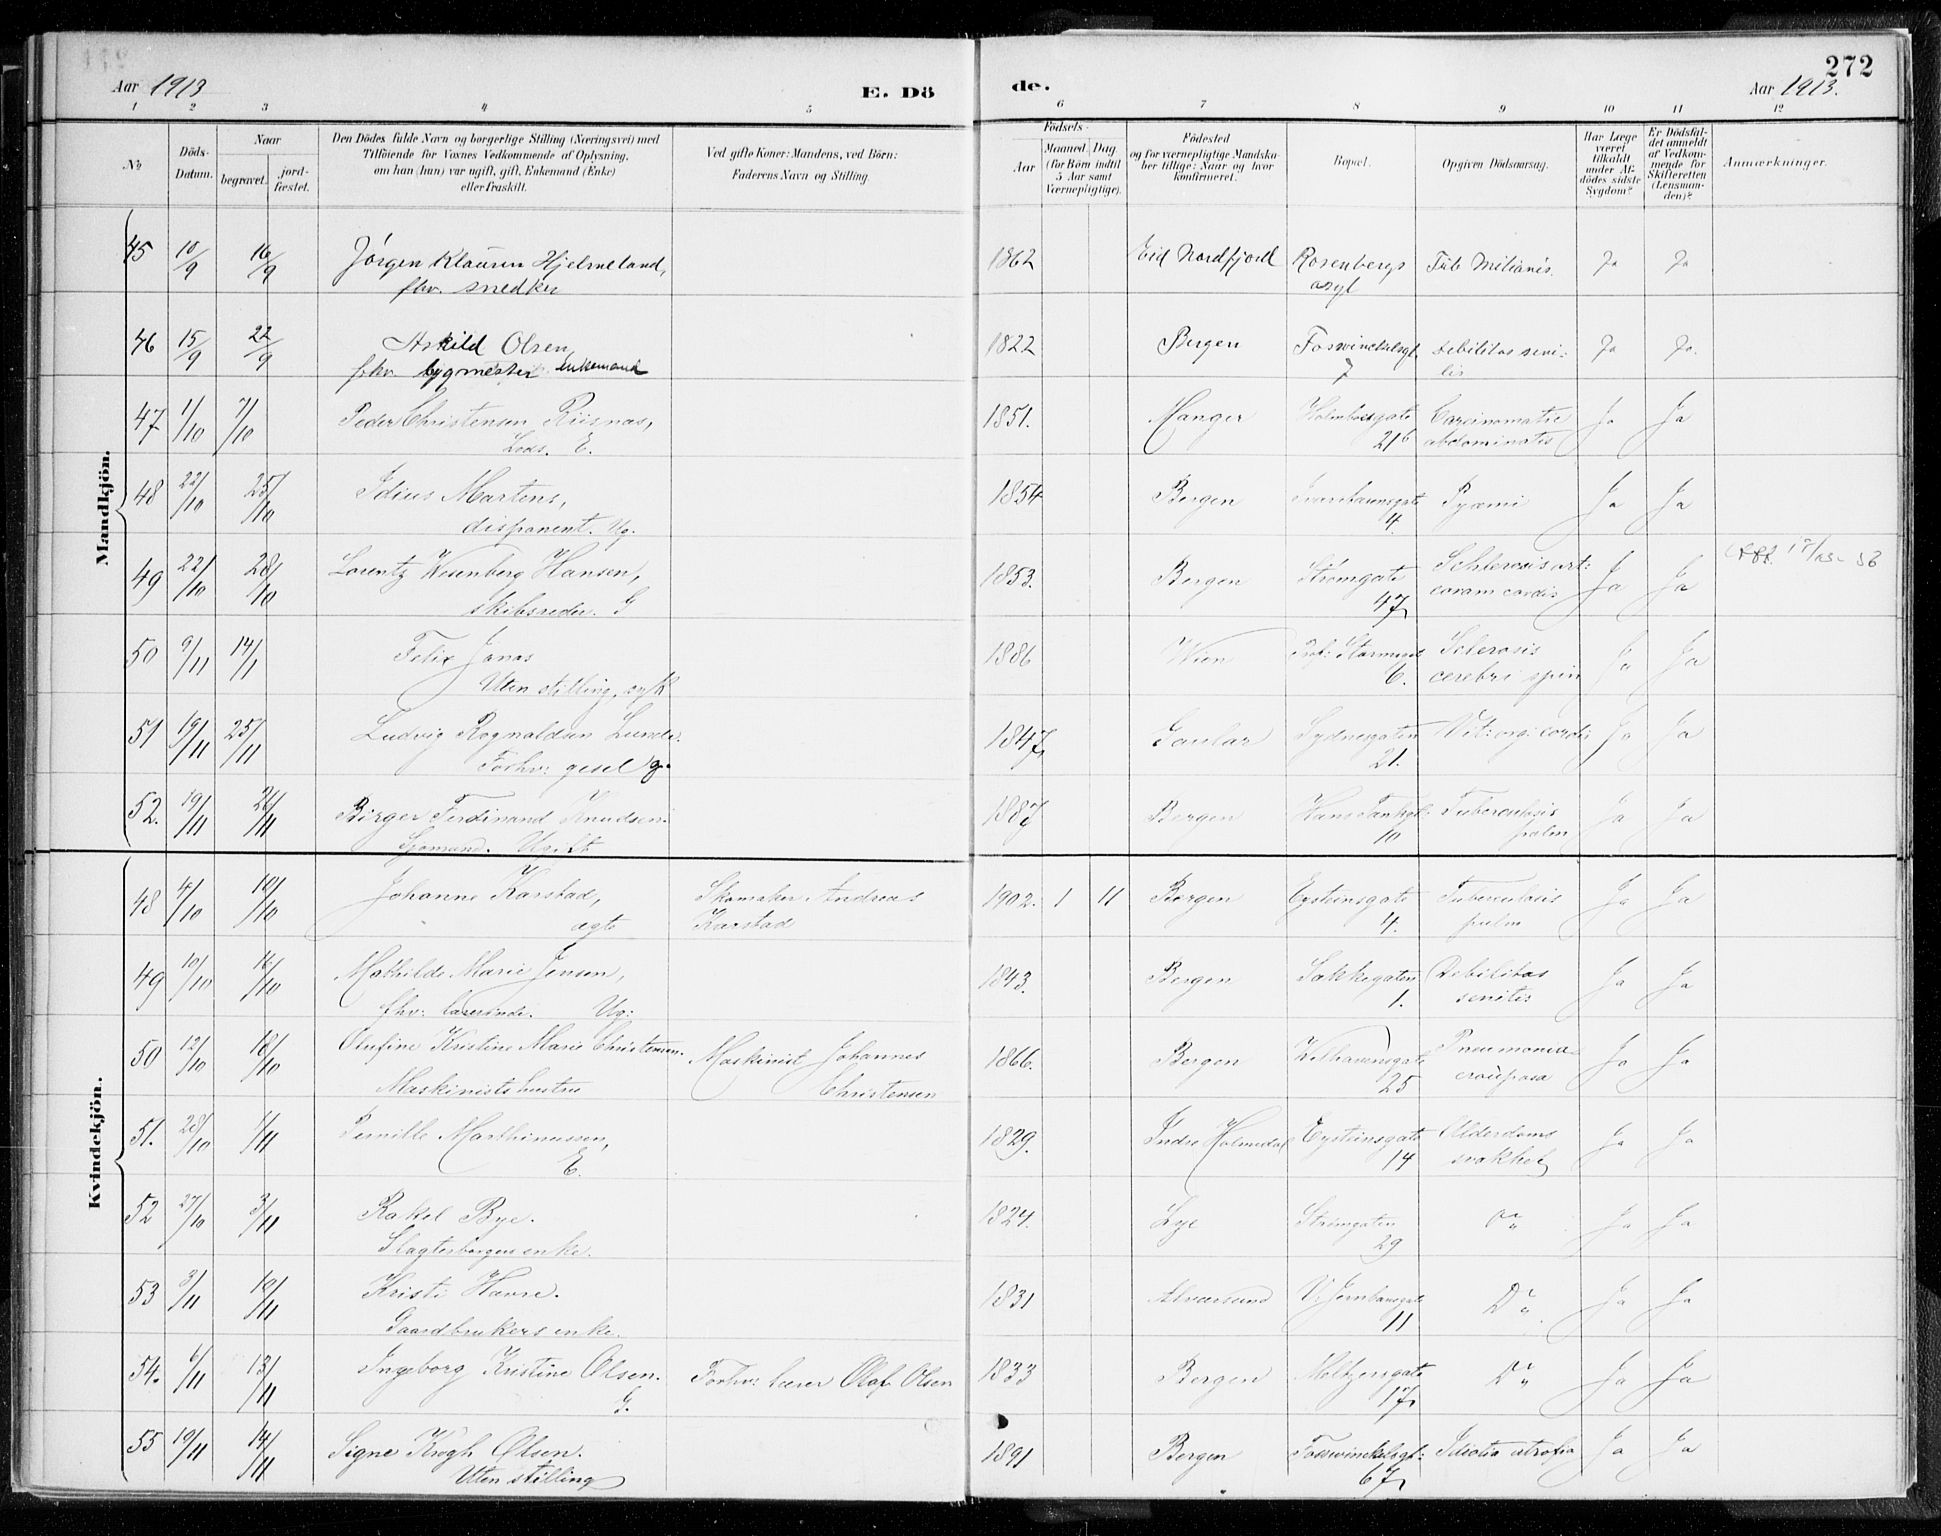 272
Aar 1913 E. Dö de. Aar 1913.
1 2 3 4 5 6 7 8 9 10 11 12
№
Döds-Datum.
Naar
begravet.
jord-fæstet.
Den Dödes fulde Navn og borgerlige Stilling (Næringsvei) med
Tilföiende for Voxnes Vedkommende af Oplysning,
om han (hun) var ugift, gift, Enkemand (Enke)
eller fraskilt.
Ved gifte Koner: Mandens, ved Börn:
Faderens Navn og Stilling.
Födsels-
Aar
Maaned. Dag.
(for Börn indtil
5 Aar samt
Værnepligtige).
Födested
og for værnepligtige Mandska-
ber tillige: Naar og hvor
konfirmeret.
Bopæl.
Opgiven Dödsaarsag.
Har Læge
været
tilkaldt
under Af-
dödes sidste
Sygdom?
Er Dödsfal-
det anmeldt
af Vedkom-
mende for
Skifteretten
(Lensman-
den)?
Anmærkninger.
Mandkjön.
45 10/9 16/9 Jörgen Klausen Hjelmeland, 1862 Eid Nordfjord Rosenbergs Tub. Miliaris. Ja Ja
fhv. snedker asyl
46 15/9 22/9 Askild Olsen 1822 Bergen Foswinckelsgt. debilitas seni- Ja Ja.
fhv. bygmester enkemand 7 lis
47 1/10 7/10 Peder Christensen Riisnas, 1851. Manger Holmboesgate Carcinomatie Ja Ja
Lods. E. 21b abdominalis
48 22/10 25/10 Idius Martens, 1854 Bergen Ivar Aasensgate Pyæmi Ja Ja
disponent. Ug. 4.
49 22/10 28/10 Lorentz Wesenberg Hansen, 1853. Bergen Strömgate Schlerosis art: Ja Ja
Skibsreder. G 47 coram cordis
50 9/11 14/1 Felix Jonas 1886 Wien Sclerosis Ja Ja
Uten stilling, 6. cerebri spin
51 19/11 25/11 Ludvig Rognaldsen Lunde. 1847 Gaular Sydnesgaten Vit: org: cordis Ja Ja
Forhv: gesel g. 21.
52. 19/11 Birger Ferdinand Knudsen. 1887 Bergen Hans Tanksgt: Tuberculosis Ja Ja
Sjömand. Ugift 10 pulm
Kvindekjön.
48 4/10 10/10 Johanne Karstad, Skomaker Andreas 1902. 1 11 Bergen Eysteinsgate Tuberculosis Ja Ja
ægte Karstad 4. pulm
49 10/10 16/10 Mathilde Marie Jensen, 1843. Bergen Sækkegaten Debilitas Ja Ja
fhv: lærerinde. Ug: 1. senilis
50 12/10 18/10 Olufine Kristine Marie Christensen. Maskinist Johannes 1866. Bergen Welhavensgate Pneumonia Ja Ja
Maskinistshustru Christensen 25 croüposa
51. 28/10 1/11 Pernille Marthinussen, 1829. Indre Holmedal Eysteinsgate Alderdoms Ja Ja
E. 14 svakhet
52 27/10 3/11 Rakel Bye. 1824. Lye Strömgaten Do " Ja Ja
Slagterborgers enke. 29
53 3/11 10/11 Kristi Havre. 1831 Alversund V. Jernbanegate Do " Ja Ja
Gaardbrukers enke. 11
54. 6/11 13/11 Ingeborg Kristine Olsen. Forhv: lærer Olaf Olsen 1833 Bergen Meltzersgate Do " Ja Ja
G. 17
55 10/11 14/11 Signe Krogh Olsen. 1891 Bergen Fosswinckelsgt: Idiotia atrofia Ja Ja
Uten stilling 67